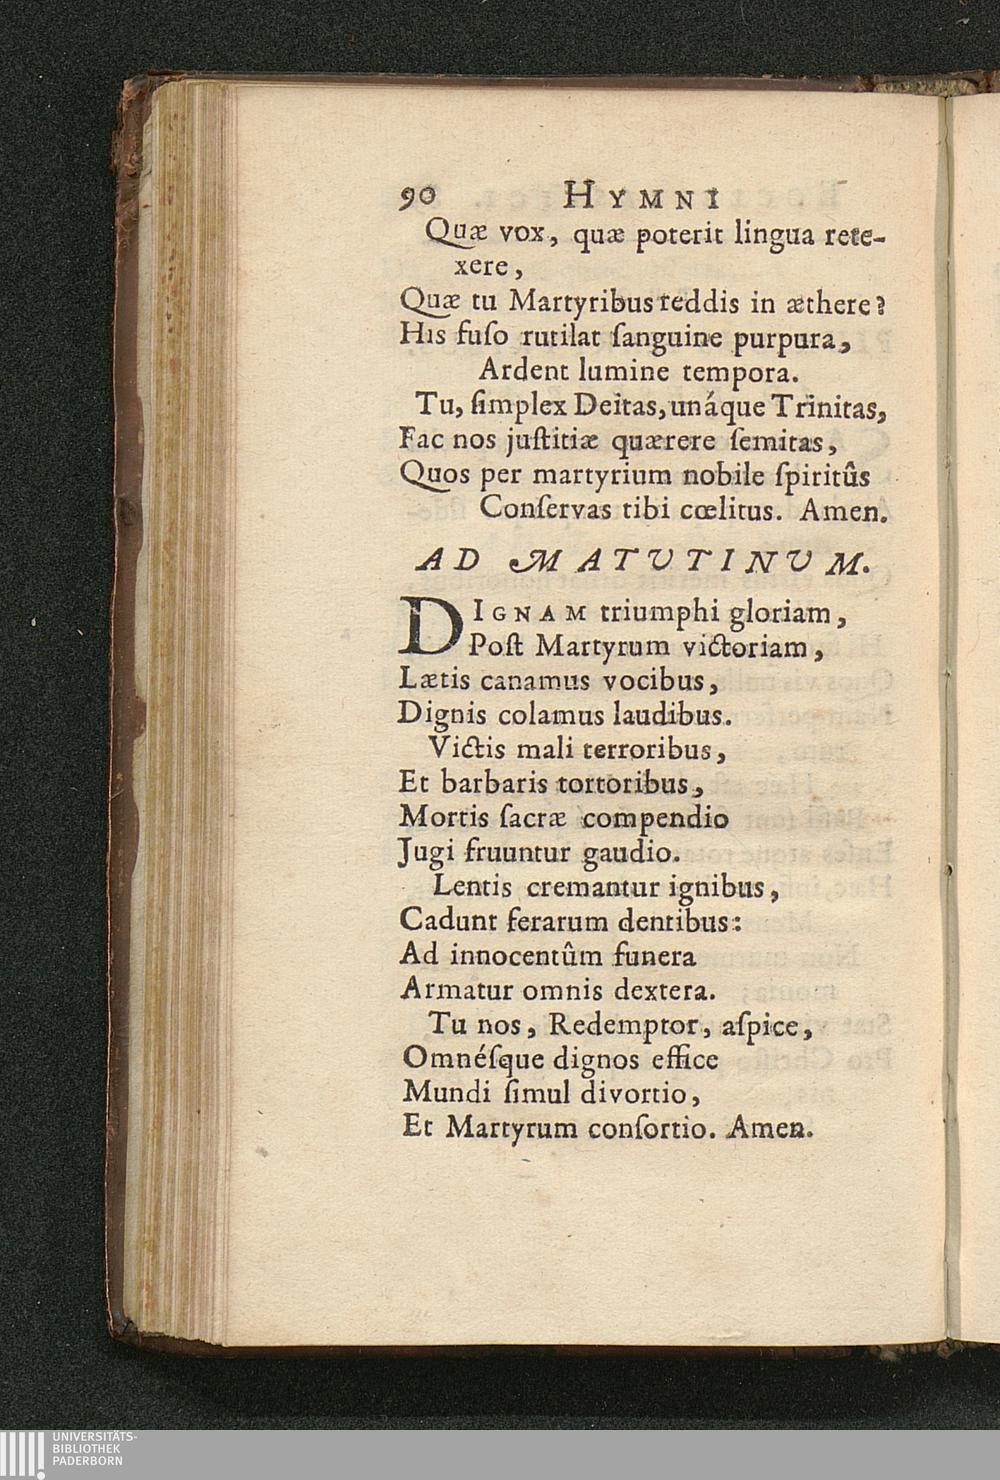 90 HYMNI
Quæ vox, quæ poterit lingua rete-
xere,
Quæ tu Martyribus reddis in æthere?
His fuſo rutilat ſanguine purpura,
Ardent lumine tempora.
Tu, ſimplex Deitas, unáque Trinitas,
Fac nos juſtitiæ quærere ſemitas,
Quos per martyrium nobile ſpiritûs
Conſervas tibi cœlitus. Amen.
AD MATUTINUM.
DIGNAM triumphi gloriam,
Poſt Martyrum victoriam,
Lætis canamus vocibus,
Dignis colamus laudibus.
Victis mali terroribus,
Et barbaris tortoribus,
Mortis ſacræ compendio
Jugi fruuntur gaudio.
Lentis cremantur ignibus,
Cadunt ferarum dentibus:
Ad innocentûm funera
Armatur omnis dextera.
Tu nos, Redemptor, aſpice,
Omnéſque dignos effice
Mundi ſimul divortio,
Et Martyrum conſortio. Amen.
UNIVERSITÄTS-
BIBLIOTHEK
PADERBORN